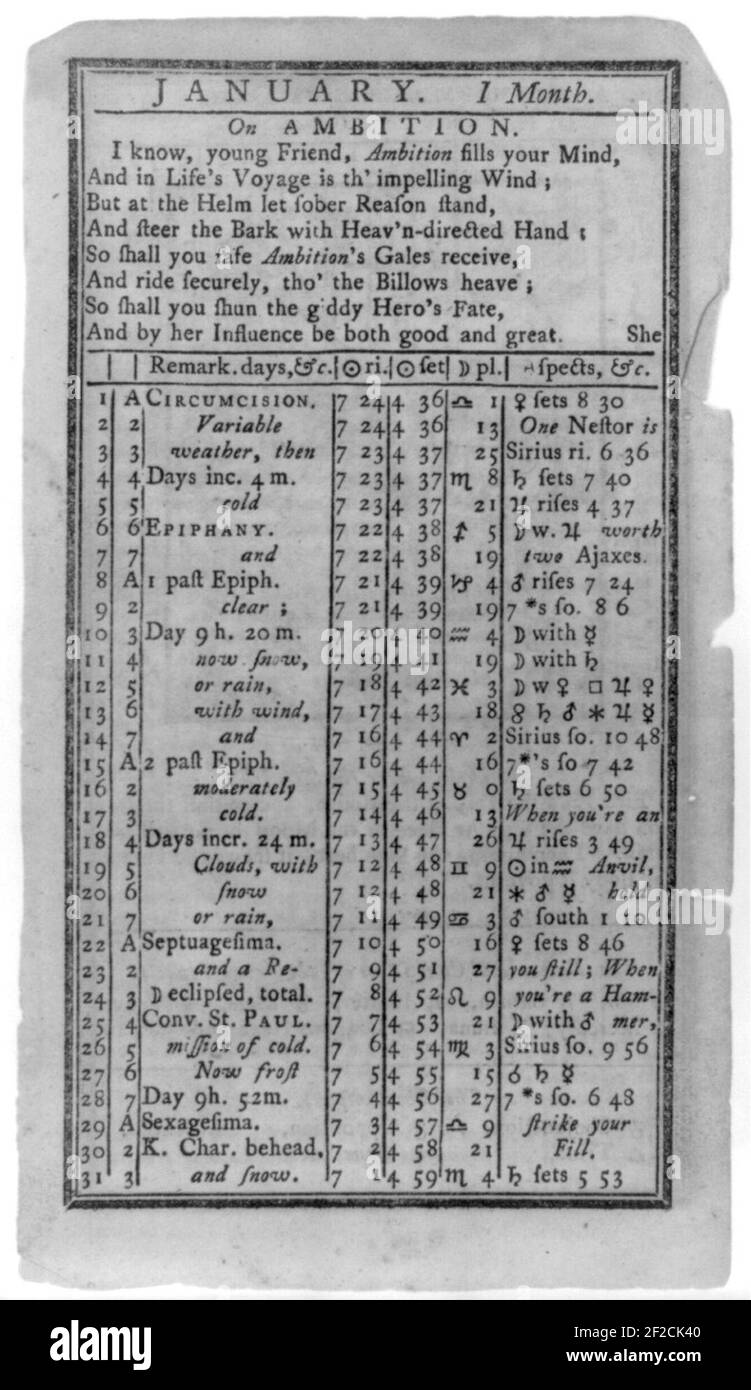 JANUARY. I Month.
On AMBITION.
I know, young Friend, Ambition fills your Mind,
And in Life's Voyage is th' impelling Wind ;
But at the Helm let ſober Reaſon ſtand,
And ſteer the Bark with Heav'n-directed Hand :
So ſhall you ſafe Ambition's Gales receive,
And ride ſecurely, tho' the Billows heave ;
So ſhall you ſhun the giddy Hero's Fate,
And by her Influence be both good and great. She
Remark. days, &c. ☉ ri. ☉ ſet ☽ pl. Aſpects, &c.
1 A CIRCUMCISION. 7 24 4 36 ♎ 1 ♀ ſets 8 30
2 2 Variable 7 24 4 36 13 One Neſtor is
3 3 weather, then 7 23 4 37 25 Sirius ri. 6 36
4 4 Days inc. 4 m. 7 23 4 37 ♏ 8 ♄ ſets 7 40
5 5 cold 7 23 4 37 21 ♃ riſes 4 37
6 6 EPIPHANY. 7 22 4 38 ♐ 5 ☽ w. ♃ worth
7 7 and 7 22 4 38 19 two Ajaxes.
8 A 1 paſt Epiph. 7 21 4 39 ♑ 4 ♂ riſes 7 24
9 2 clear ; 7 21 4 39 19 7 *s ſo. 8 6
10 3 Day 9 h. 20 m. 7 20 4 40 ♒ 4 ☽ with ☿
11 4 now ſnow, 7 19 4 41 19 ☽ with ♄
12 5 or rain, 7 18 4 42 ♓ 3 ☽ w ♀ □ ♃ ♀
13 6 with wind, 7 17 4 43 18 ♄ ♂ * ♃ ☿
14 7 and 7 16 4 44 ♈ 2 Sirius ſo. 10 48
15 A 2 paſt Epiph. 7 16 4 44 16 7*'s ſo 7 42
16 2 moderately 7 15 4 45 ♉ 0 ♄ ſets 6 50
17 3 cold. 7 14 4 46 13 When you're an
18 4 Days incr. 24 m. 7 13 4 47 26 ♃ riſes 3 49
19 5 Clouds, with 7 12 4 48 ♊ 9 ☉ in ♒ Anvil,
20 6 ſnow 7 12 4 48 21 * ♂ ☿ hold
21 7 or rain, 7 11 4 49 ♋ 3 ♂ ſouth 1 10
22 A Septuageſima. 7 10 4 50 16 ♀ ſets 8 46
23 2 and a Re- 7 9 4 51 27 you ſtill ; When
24 3 ☽ eclipſed, total. 7 8 4 52 ♌ 9 you're a Ham-
25 4 Conv. St. PAUL. 7 7 4 53 21 ☽ with ♂ mer,
26 5 miſſion of cold. 7 6 4 54 ♍ 3 Sirius ſo. 9 56
27 6 Now froſt 7 5 4 55 15 ☌ ♄ ☿
28 7 Day 9h. 52m. 7 4 4 56 27 7 *s ſo. 6 48
29 A Sexageſima. 7 3 4 57 ♎ 9 ſtrike your
30 2 K. Char. behead, 7 2 4 58 21 Fill.
31 3 and ſnow. 7 1 4 59 ♏ 4 ♄ ſets 5 53
alamy
Image ID: 2F2CK40
www.alamy.com